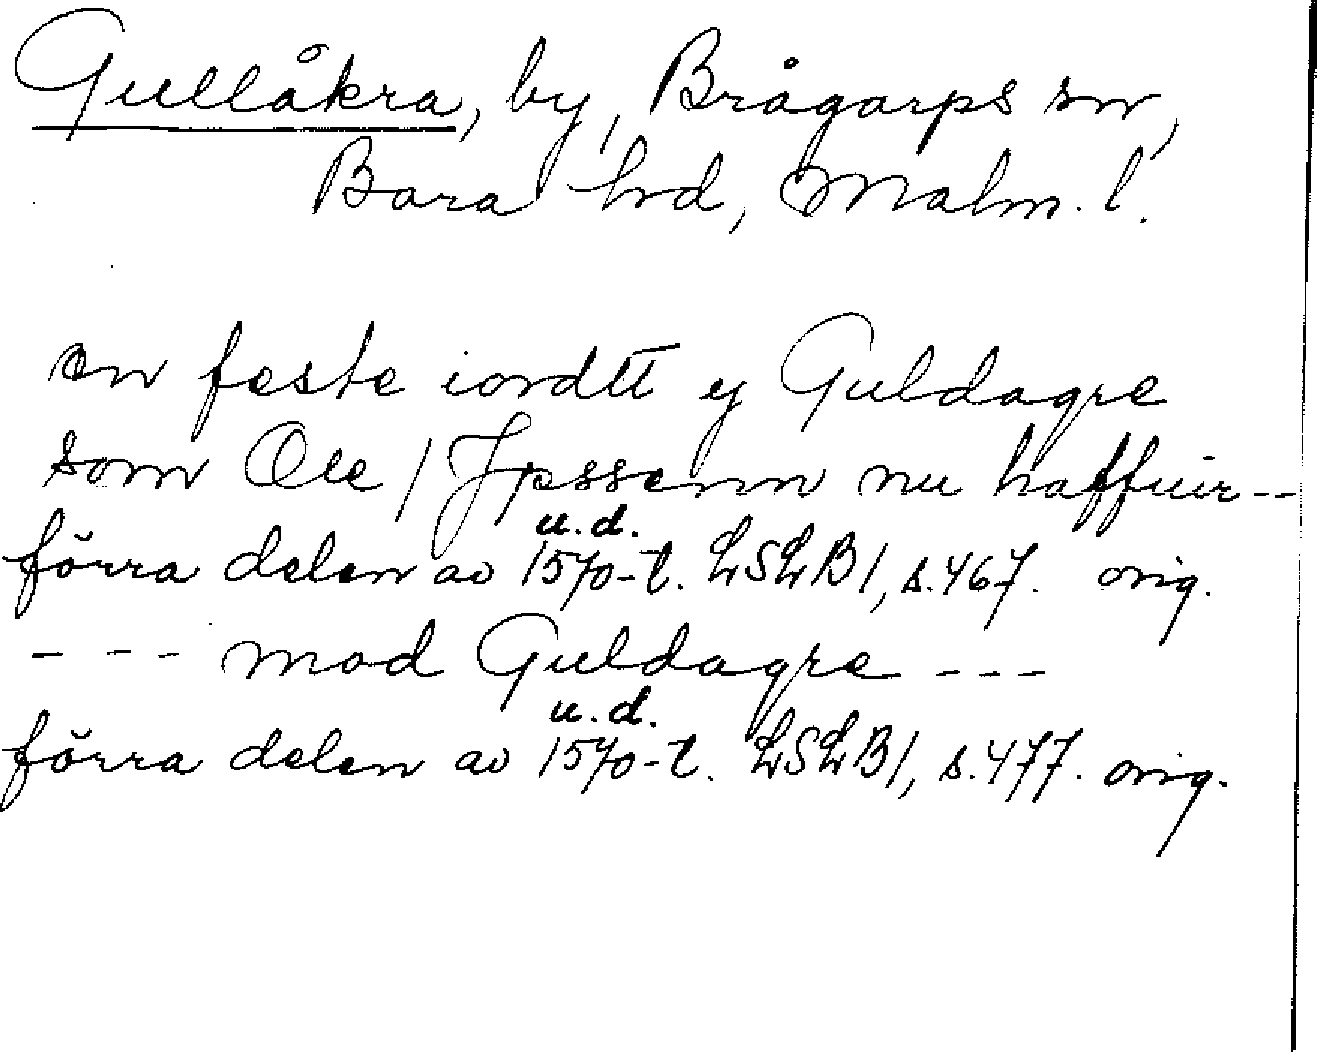 Gullåkra, by, Brågarps sn,
Bara hrd, Malm. l.
en feste iordtt y Guldagre
som Ole / Jpssenn nu haffuir--
u.d.
förra delen av 1570-t. LSLB1, s.467. orig.
- - - mod Guldagre - - -
u.d.
förra delen av 1570-t. LSLB1, s.477. orig.